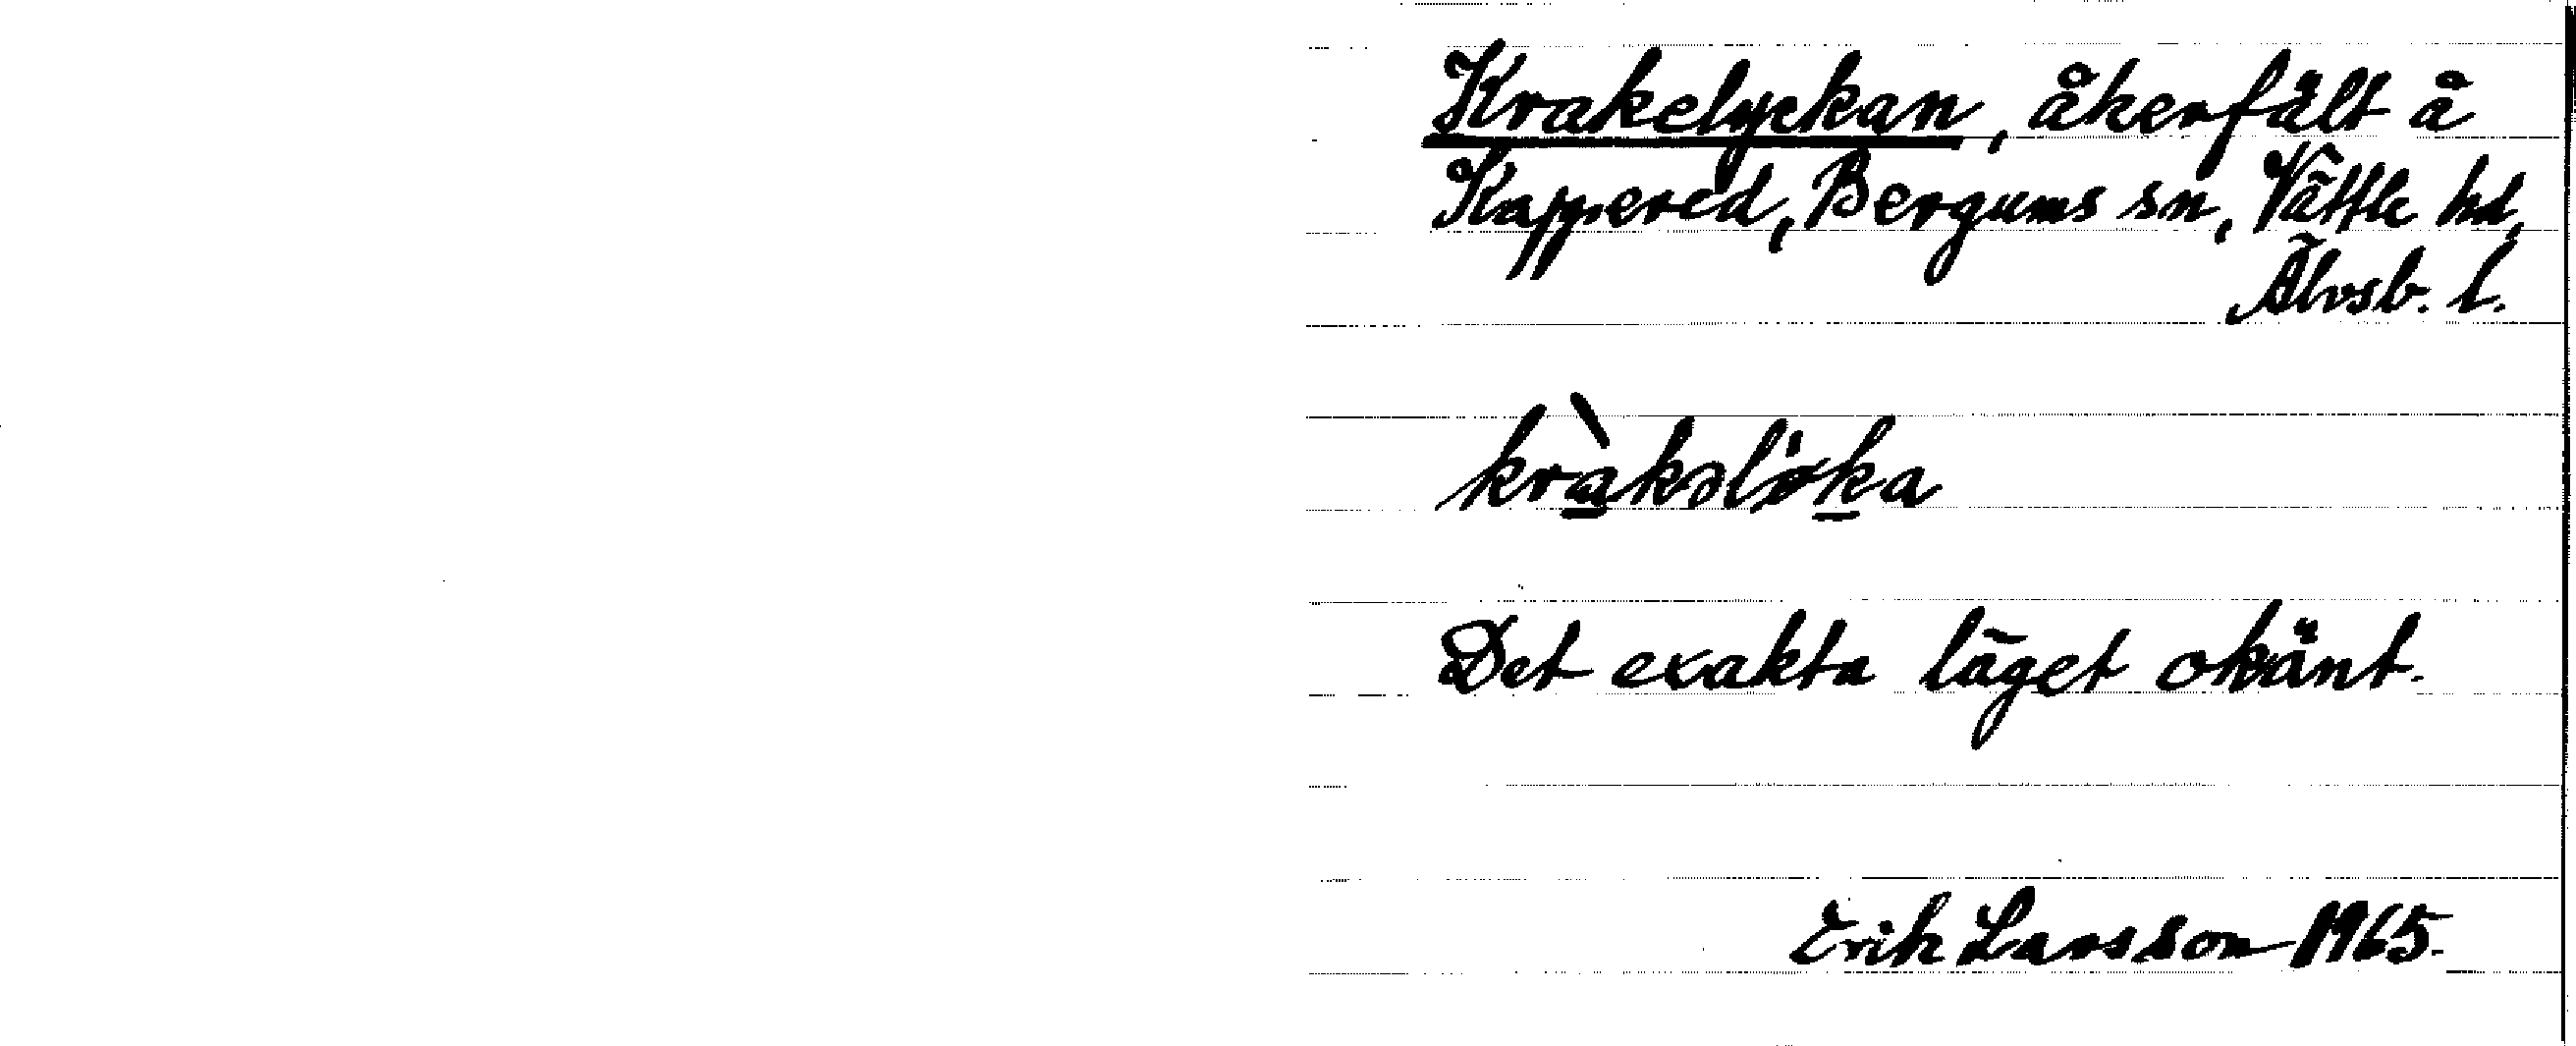 Krakelyckan, åkerfält å
Kappered, Bergums sn, Vättle hd,
Älvsb. l.
kràkəlø̀ka
Det exakta läget okänt.
Erik Larsson 1965.